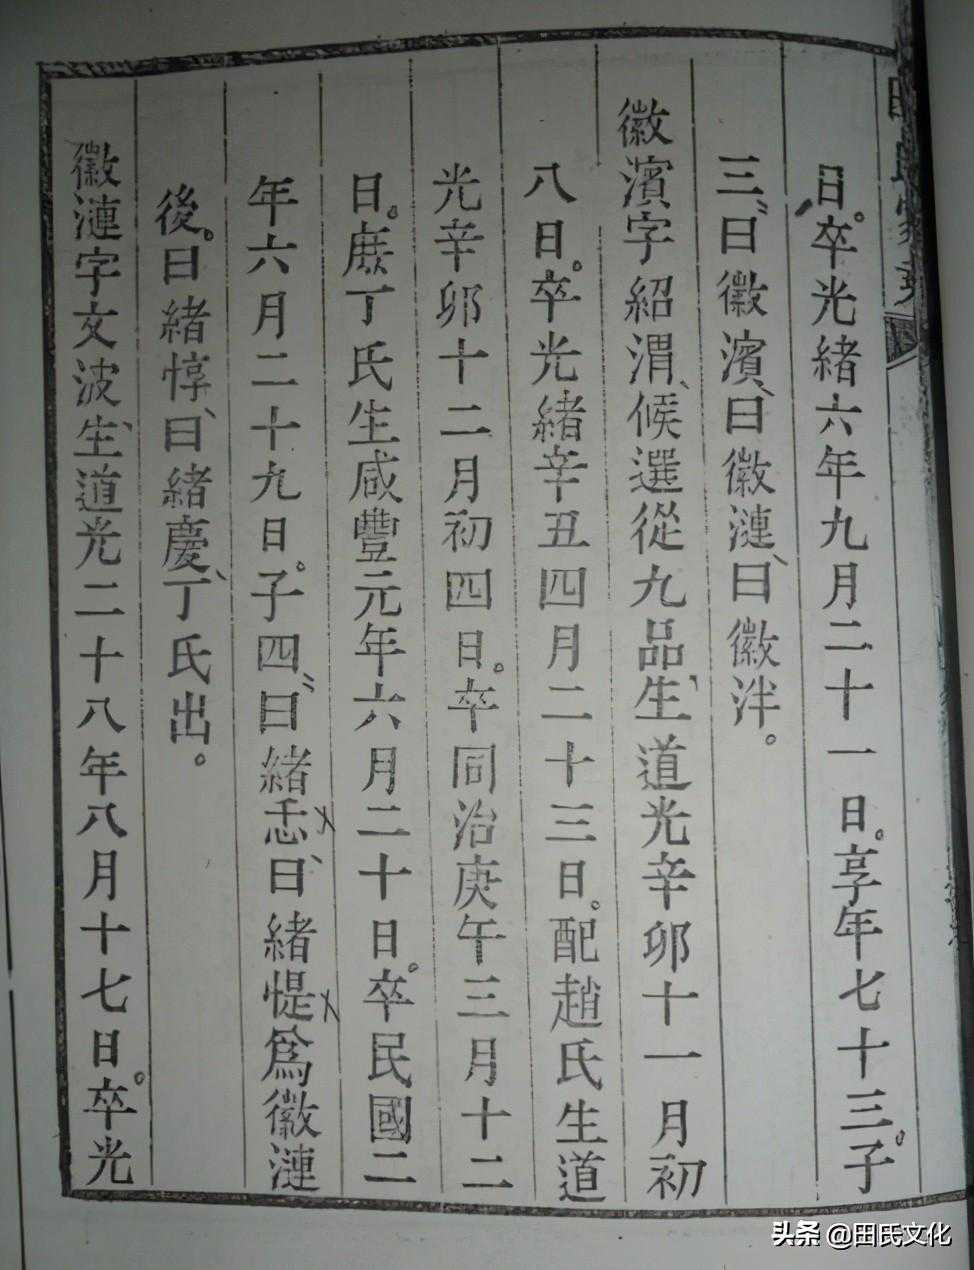 日。卒光緒六年九月二十一日。享年七十三。子
三、曰徽濱、曰徽漣、曰徽泮。
徽濱字紹渭、候選從九品、生道光辛卯十一月初
八日。卒光緒辛丑四月二十三日。配趙氏生道
光辛卯十二月初四日。卒同治庚午三月十二
日。庶丁氏生咸豐元年六月二十日。卒民國二
年六月二十九日。子四、曰緒忎、曰緒惿為徽漣
後。曰緒惇、曰緒慶、丁氏出。
徽漣字文波、生道光二十八年八月十七日。卒光
头条 @田氏文化